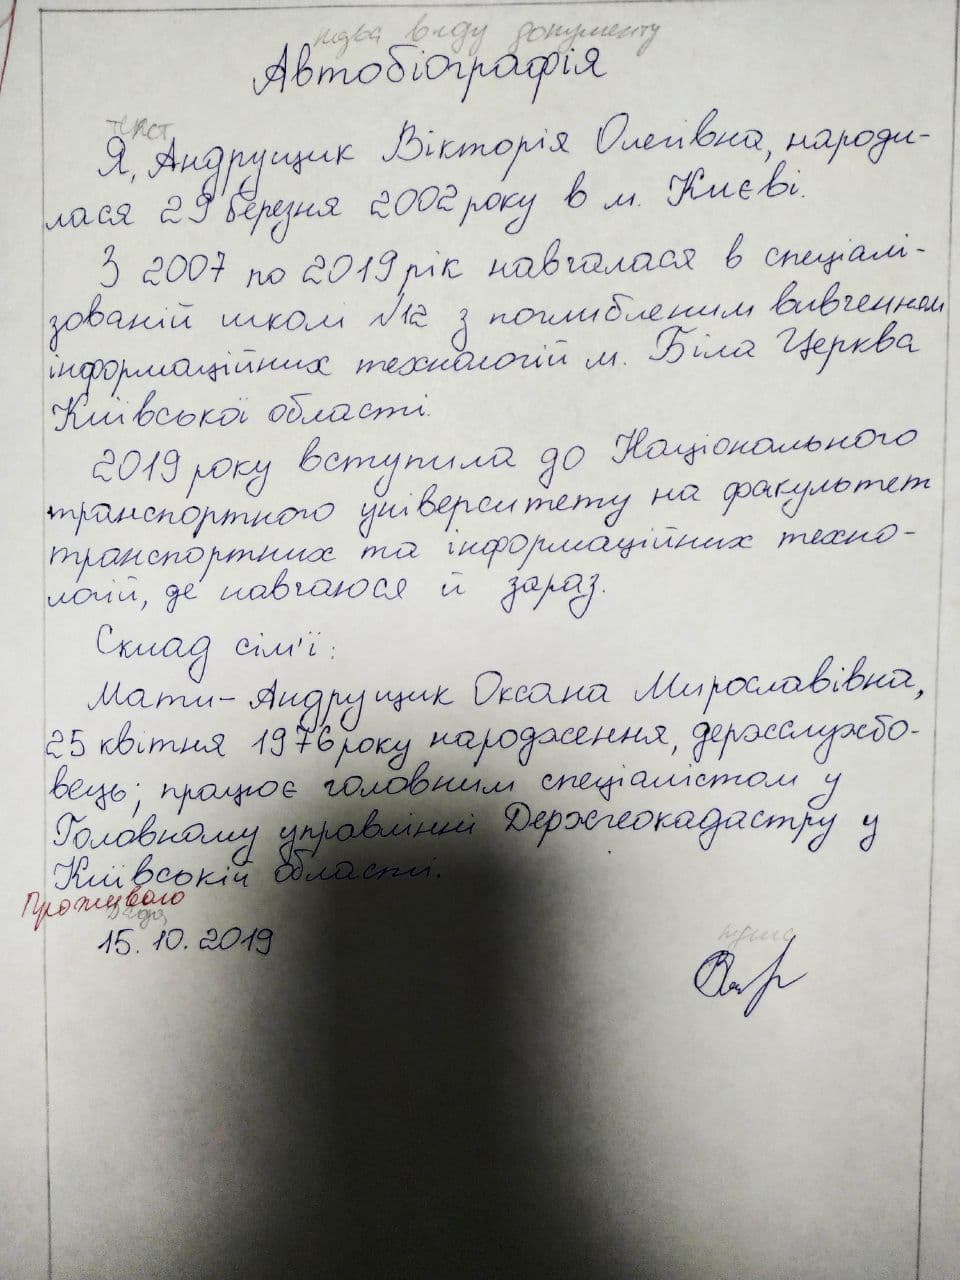 назва виду документу
Автобіографія
текст
Я, Андрущик Вікторія Олегівна, народи-
лася 29 березня 2002 року в м. Києві.
З 2007 по 2019 рік навчалася в спеціалі-
зованій школі №12 з поглибленим вивченням
інформаційних технологій м. Біла Церква
Київської області.
2019 року вступила до Національного
транспортного університету на факультет
транспортних та інформаційних техно-
логій, де навчаюся й зараз.
Склад сім'ї:
Мати – Андрущик Оксана Мирославівна,
25 квітня 1976 року народження, держслужбо-
вець; працює головним спеціалістом у
Головному управлінні Держгеокадастру у
Київській області.
Проживаю
Дата
15.10.2019